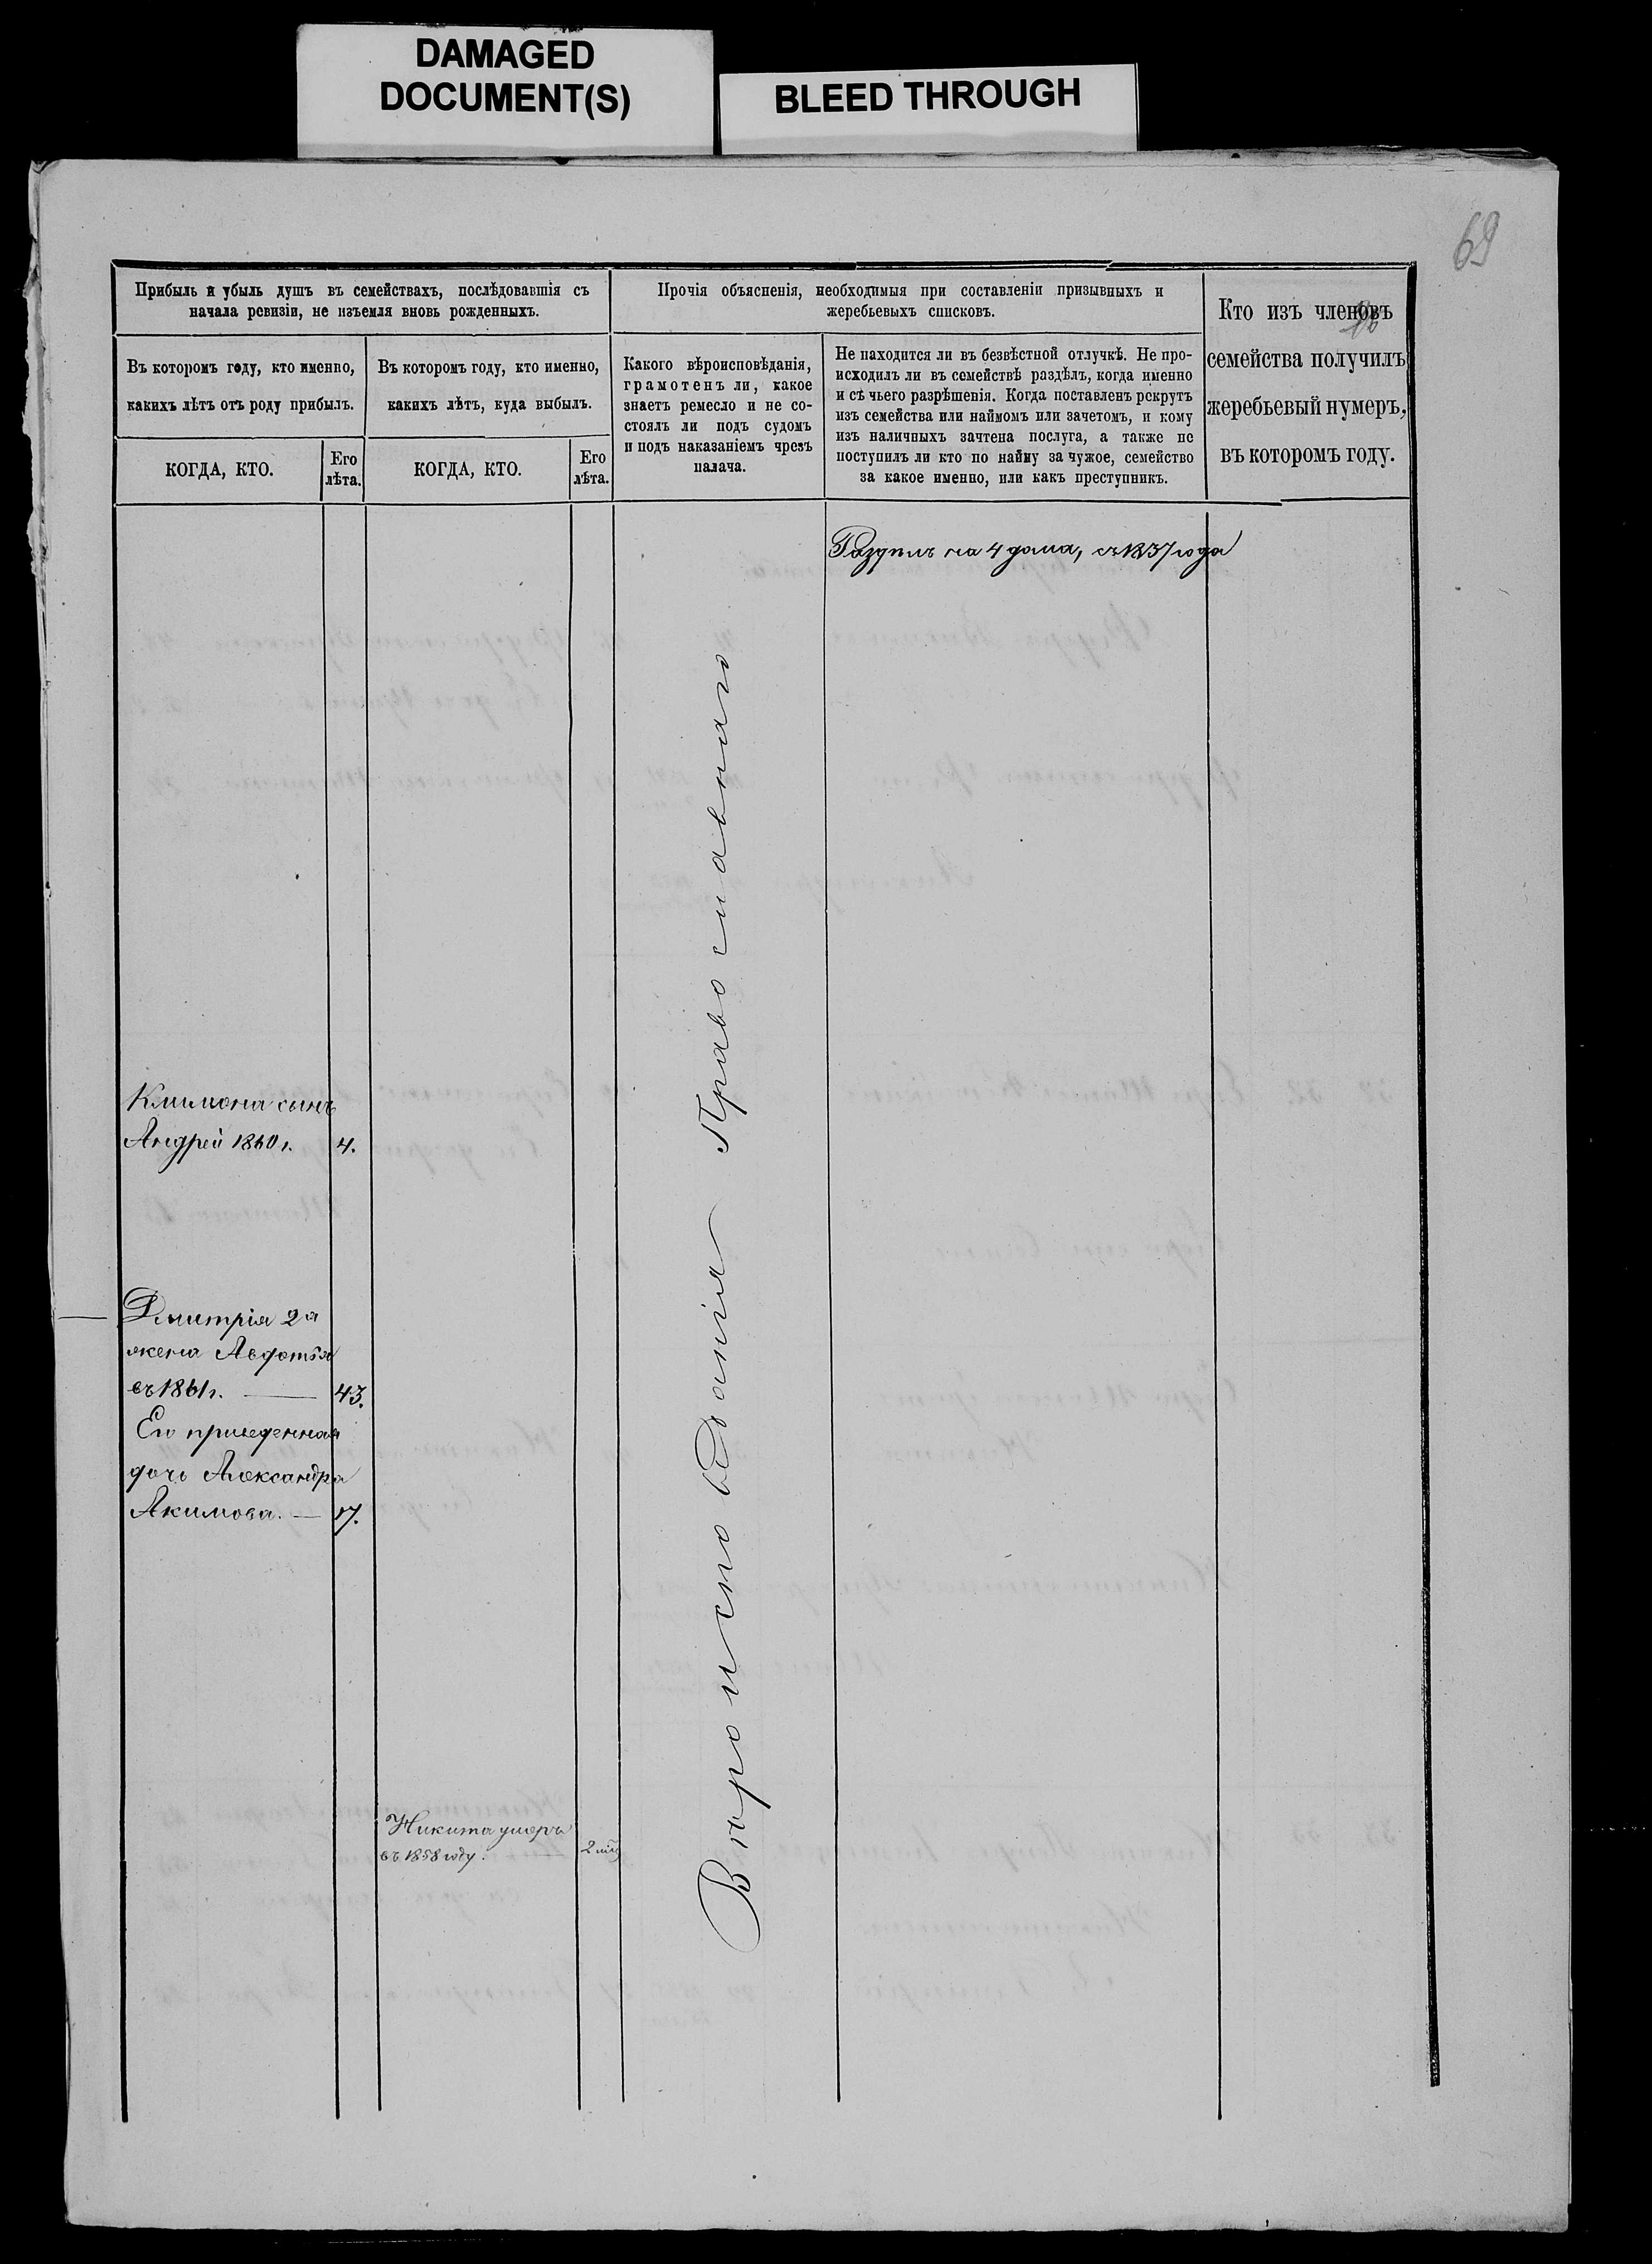 DAMAGED
DOCUMENT(S)
BLEED THROUGH
69
Прибыль и убыль душъ въ семействахъ, послѣдовавшія съ
начала ревизіи, не изъемля вновь рожденныхъ.
Въ которомъ году, кто именно,
какихъ лѣтъ отъ роду прибылъ.
КОГДА, КТО.
Его
лѣта.
Въ которомъ году, кто именно,
какихъ лѣтъ, куда выбылъ.
КОГДА, КТО.
Его
лѣта.
Прочія объясненія, необходимыя при составленіи призывныхъ и
жеребьевыхъ списковъ.
Какого вѣроисповѣданія,
грамотенъ ли, какое
знаетъ ремесло и не со-
стоялъ ли подъ судомъ
и подъ наказаніемъ чрезъ
палача.
Не находится ли въ безвѣстной отлучкѣ. Не про-
исходилъ ли въ семействѣ раздѣлъ, когда именно
и съ чьего разрѣшенія. Когда поставленъ рекрутъ
изъ семейства или наймомъ или зачетомъ, и кому
изъ наличныхъ зачтена послуга, а также не
поступилъ ли кто по найму за чужое, семейство
за какое именно, или какъ преступникъ.
Кто изъ членовъ
семейства получилъ
жеребьевый нумеръ,
въ которомъ году.
Раздѣлъ на 4 дома, съ 1857 года
Климона сынъ
Андрей 1860 г. 4.
Дмитрія 2я
жена Авдотья
съ 1861 г. — 43.
Ею приведенная
дочь Александра
Акимова. — 17.
Никита умеръ
въ 1858 году.
Вѣроисповѣданія Православнаго